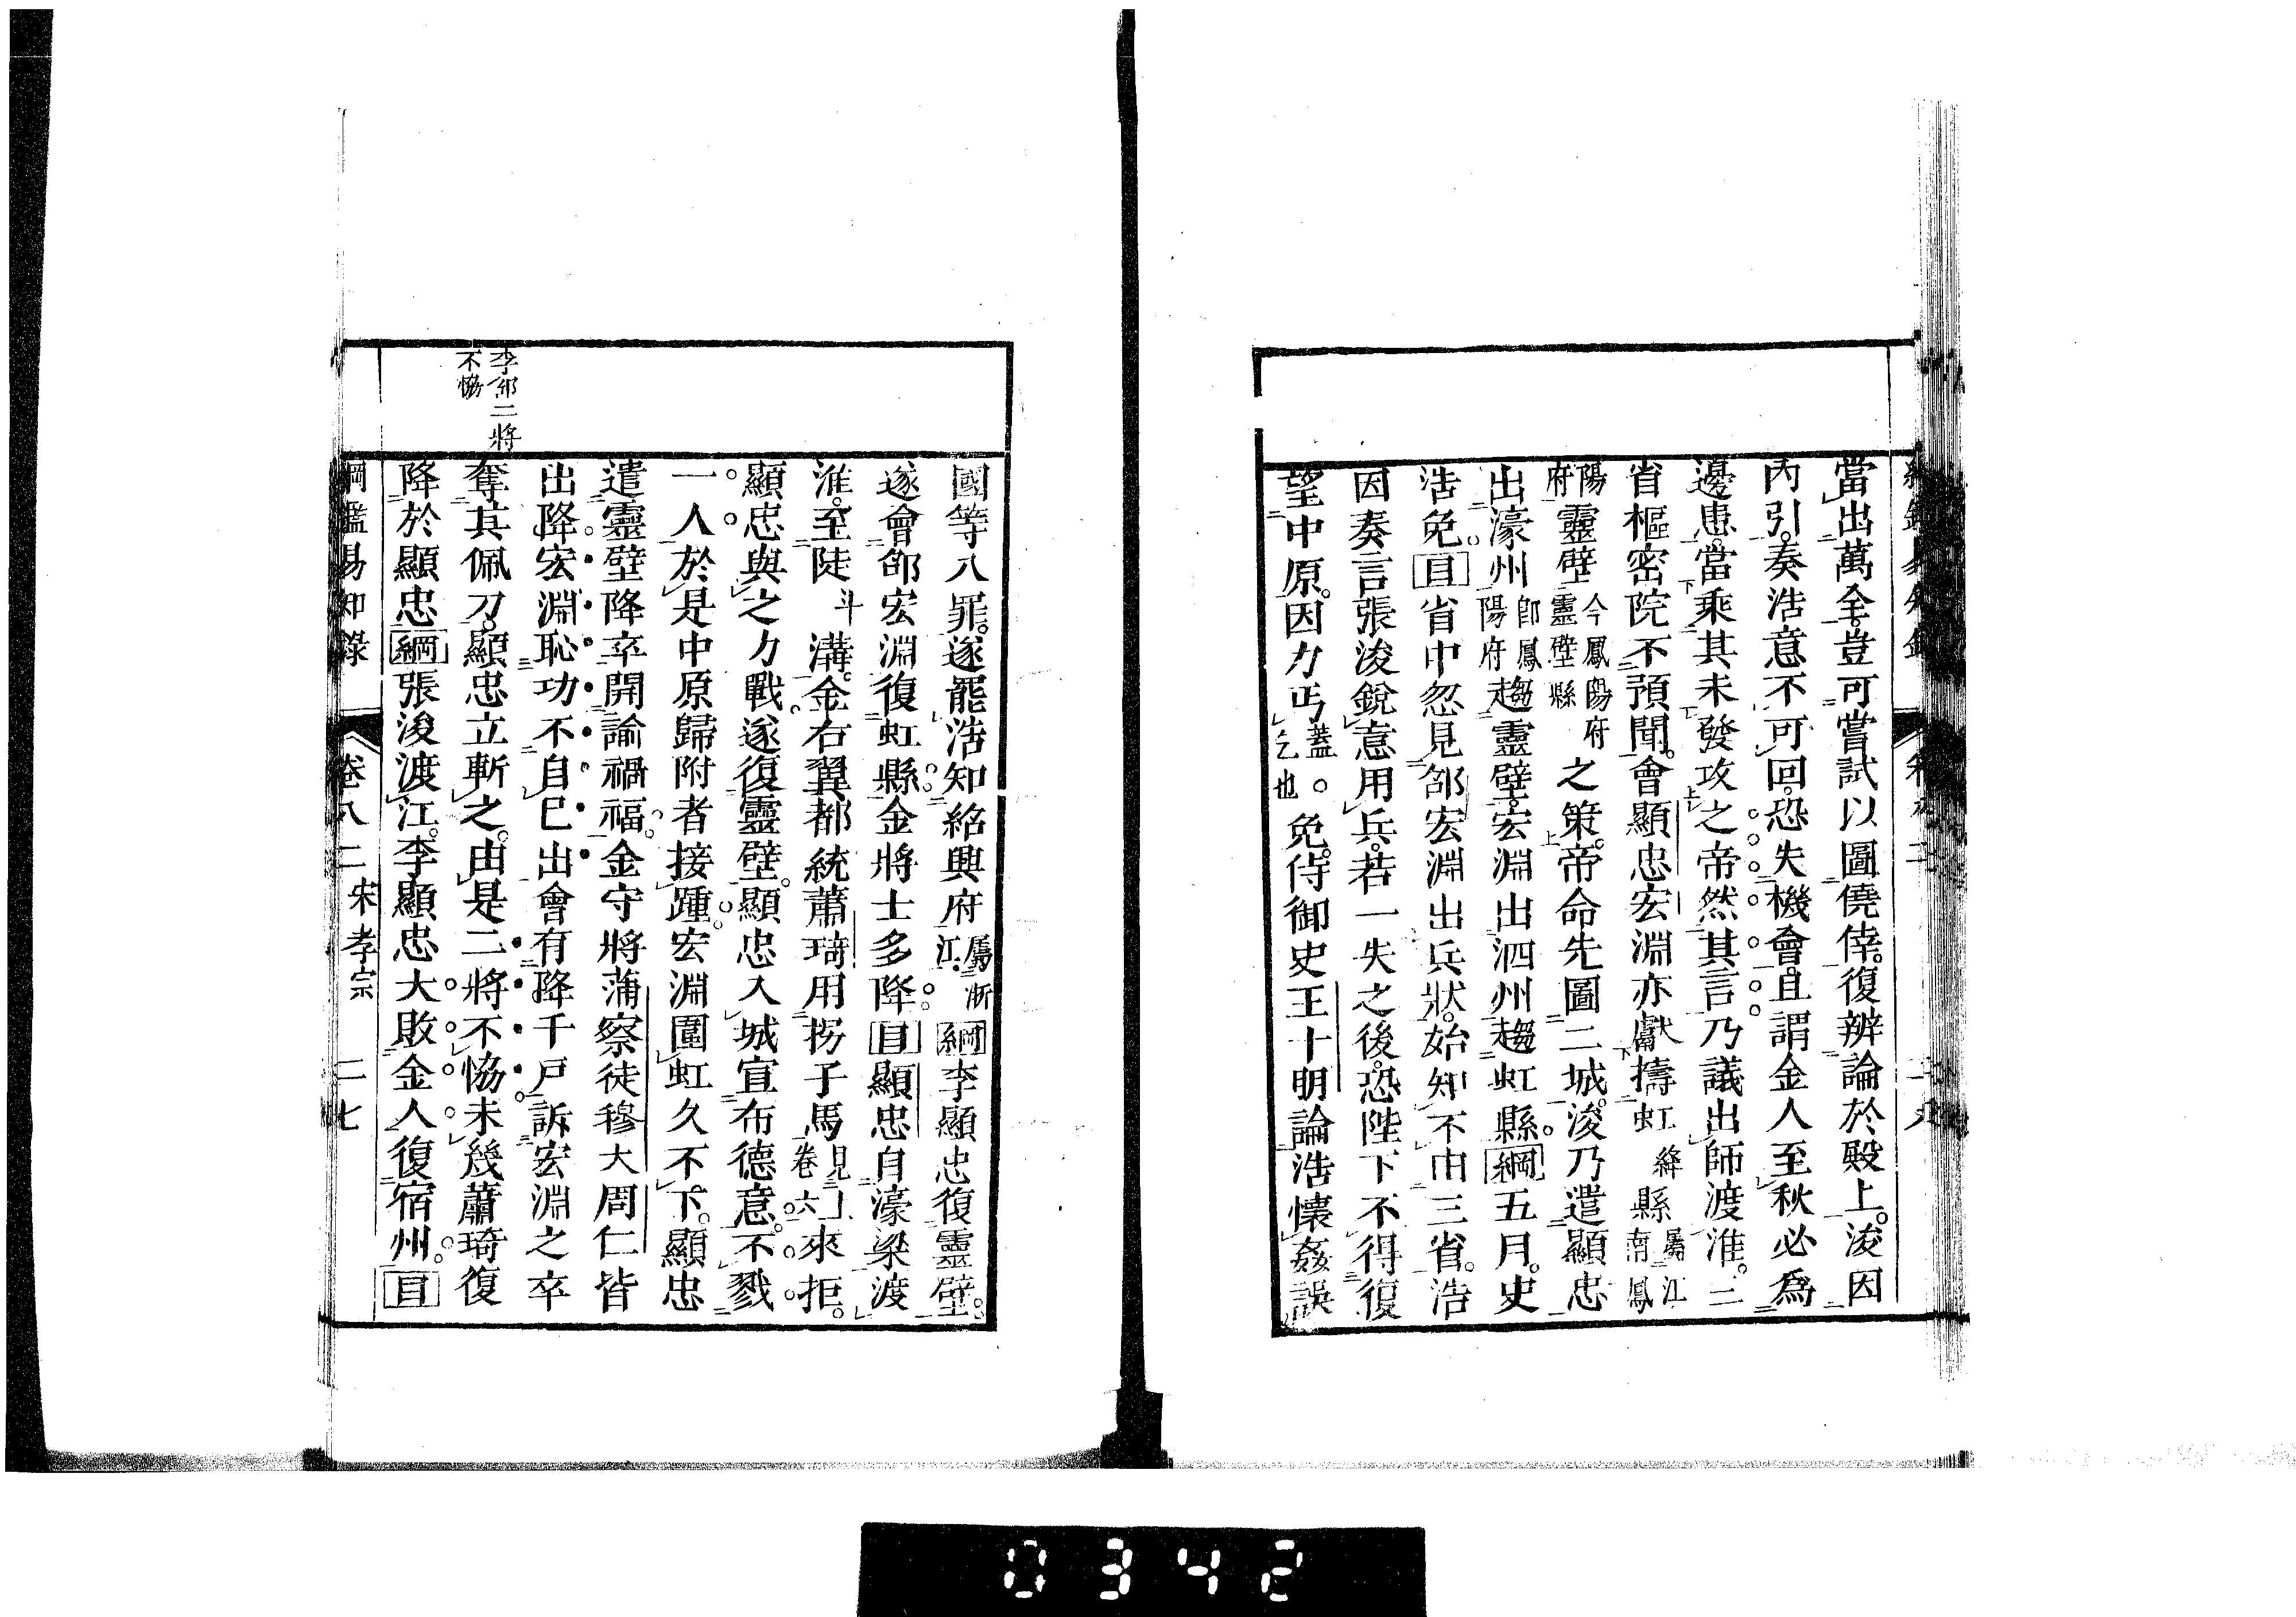 當出萬全。豈可嘗試以圖僥倖。復辨論於殿上。浚因
內引。奏浩意不可回。恐失機會。且謂金人至秋必爲
邊患。當乘其未發攻之。帝然其言。乃議出師渡淮。三
省樞密院不預聞。會顯忠宏淵亦獻擣虹絳縣屬江南鳳
陽府靈壁今鳳陽府靈璧縣之策。帝命先圖二城。浚乃遣顯忠
出濠州卽鳳陽府趨靈壁。宏淵出泗州趨虹縣。綱五月。史
浩免。目省中忽見邵宏淵出兵狀。始知不由三省。浩
因奏言張浚銳意用兵。若一失之後。恐陛下不得復
望中原。因力丐蓋乞也。免。侍御史王十朋論浩懷姦誤
國等八罪。遂罷浩知紹興府屬浙江。綱李顯忠復靈壁。
遂會邵宏淵復虹縣。金將士多降。目顯忠自濠梁渡
淮。至陡斗溝。金右翼都統蕭琦用拐子馬見卷六來拒。
顯忠與之力戰。遂復靈壁。顯忠入城宣布德意。不戮
一人。於是中原歸附者接踵。宏淵圍虹久不下。顯忠
遣靈壁降卒開諭禍福。金守將蒲察徒穆大周仁皆
出降。宏淵恥功不自已出。會有降千戶訴宏淵之卒
奪其佩刀。顯忠立斬之。由是二將不恊。未幾蕭琦復
降於顯忠。綱張浚渡江。李顯忠大敗金人復宿州。目
李邵二將
不恊
綱鑑易知錄 卷八二 宋孝宗 二七
0342